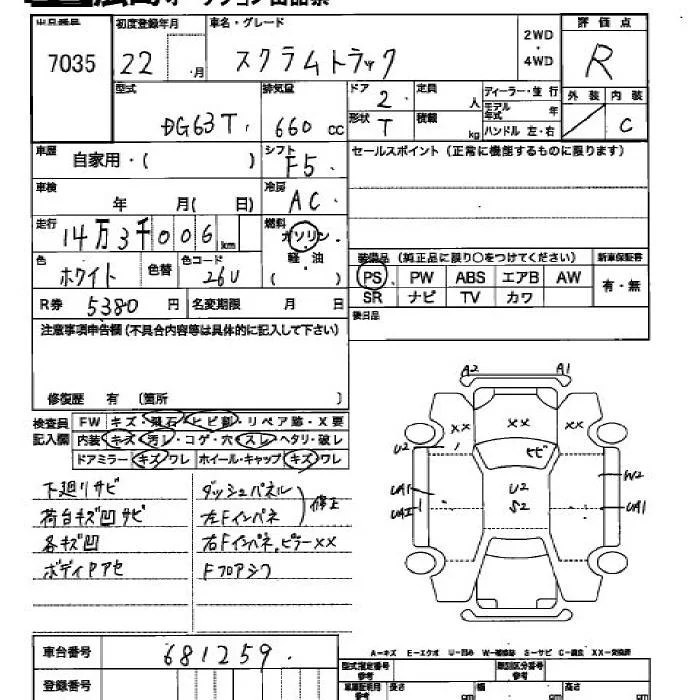 出品番号 初度登録年月 車名・グレード 評価点
7035 22 ・月 スクラムトラック 2WD・4WD R
型式 排気量 ドア 定員 ディーラー・並行 外装 内装
DG63T 660 cc 2 人 モデル年式 年
形状 T 積載 kg ハンドル 左・右 C
車歴 自家用・( ) シフト F5 セールスポイント (正常に機能するものに限ります)
車検 年 月( 日) 冷房 AC
走行 14万3千006km 燃料 ガソリン・軽・油 ( )
装備品 (純正品に限り○をつけてください) 新車保証書
色 ホワイト 色替 色コード 26U PS PW ABS エアB AW 有・無
R券 5380 円 名変期限 月 日 SR ナビ TV カワ
注意事項申告欄(不具合内容等は具体的に記入して下さい) 後日品
修復歴 有 〔箇所 〕
検査員記入欄 FW キズ・飛石・ヒビ割・リペア跡・X要
内装 キズ・汚レ・コゲ・穴・スレ・ヘタリ・破レ
ドアミラー キズ・ワレ ホイール・キャップ キズ・ワレ
A2 A1
XX XX XX
U2 ヒビ
UA1 U2 W2
UA2 S2 UA1
下廻りサビ ダッシュパネル
荷台キズ凹サビ 左Fインパネ 修正
各キズ凹 右Fインパネ,ピラーXX
ボディPアセ Fフロアシワ
A-キズ E-エクボ U-凹み W-補修跡 S-サビ C-腐食 XX-交換済
車台番号 681259
登録番号 型式指定番号 類別区分番号
長さ cm 幅 cm 高さ cm